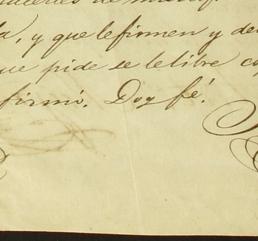 a, y que le firmen y de
ue pide se le libre co
firmó. Doy fé.